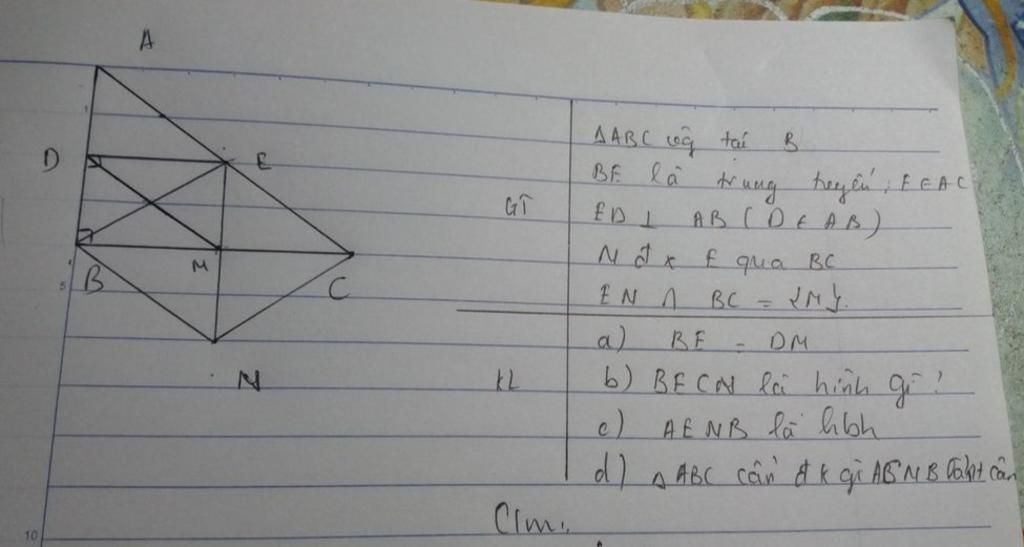 A
D
E
B
M
C
N
1
5
10
GT
ΔABC vg tại B
BE là trung tuyến, E ∈ AC
ED ⊥ AB (D ∈ AB)
N đx E qua BC
EN ∩ BC = {M}.
KL
a) BE = DM
b) BECN là hình gì?
c) AENB là hbh
d) ΔABC cần đk gì AENB là ht cân
C/m: